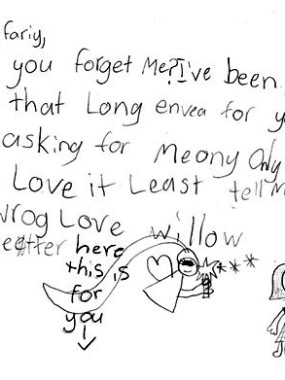 fariy,
you forget Me? I've been
that Long envea for y
asking for Meony Only
Love it Least tell M
wrog Love Willow
eetter here
this is
for
you